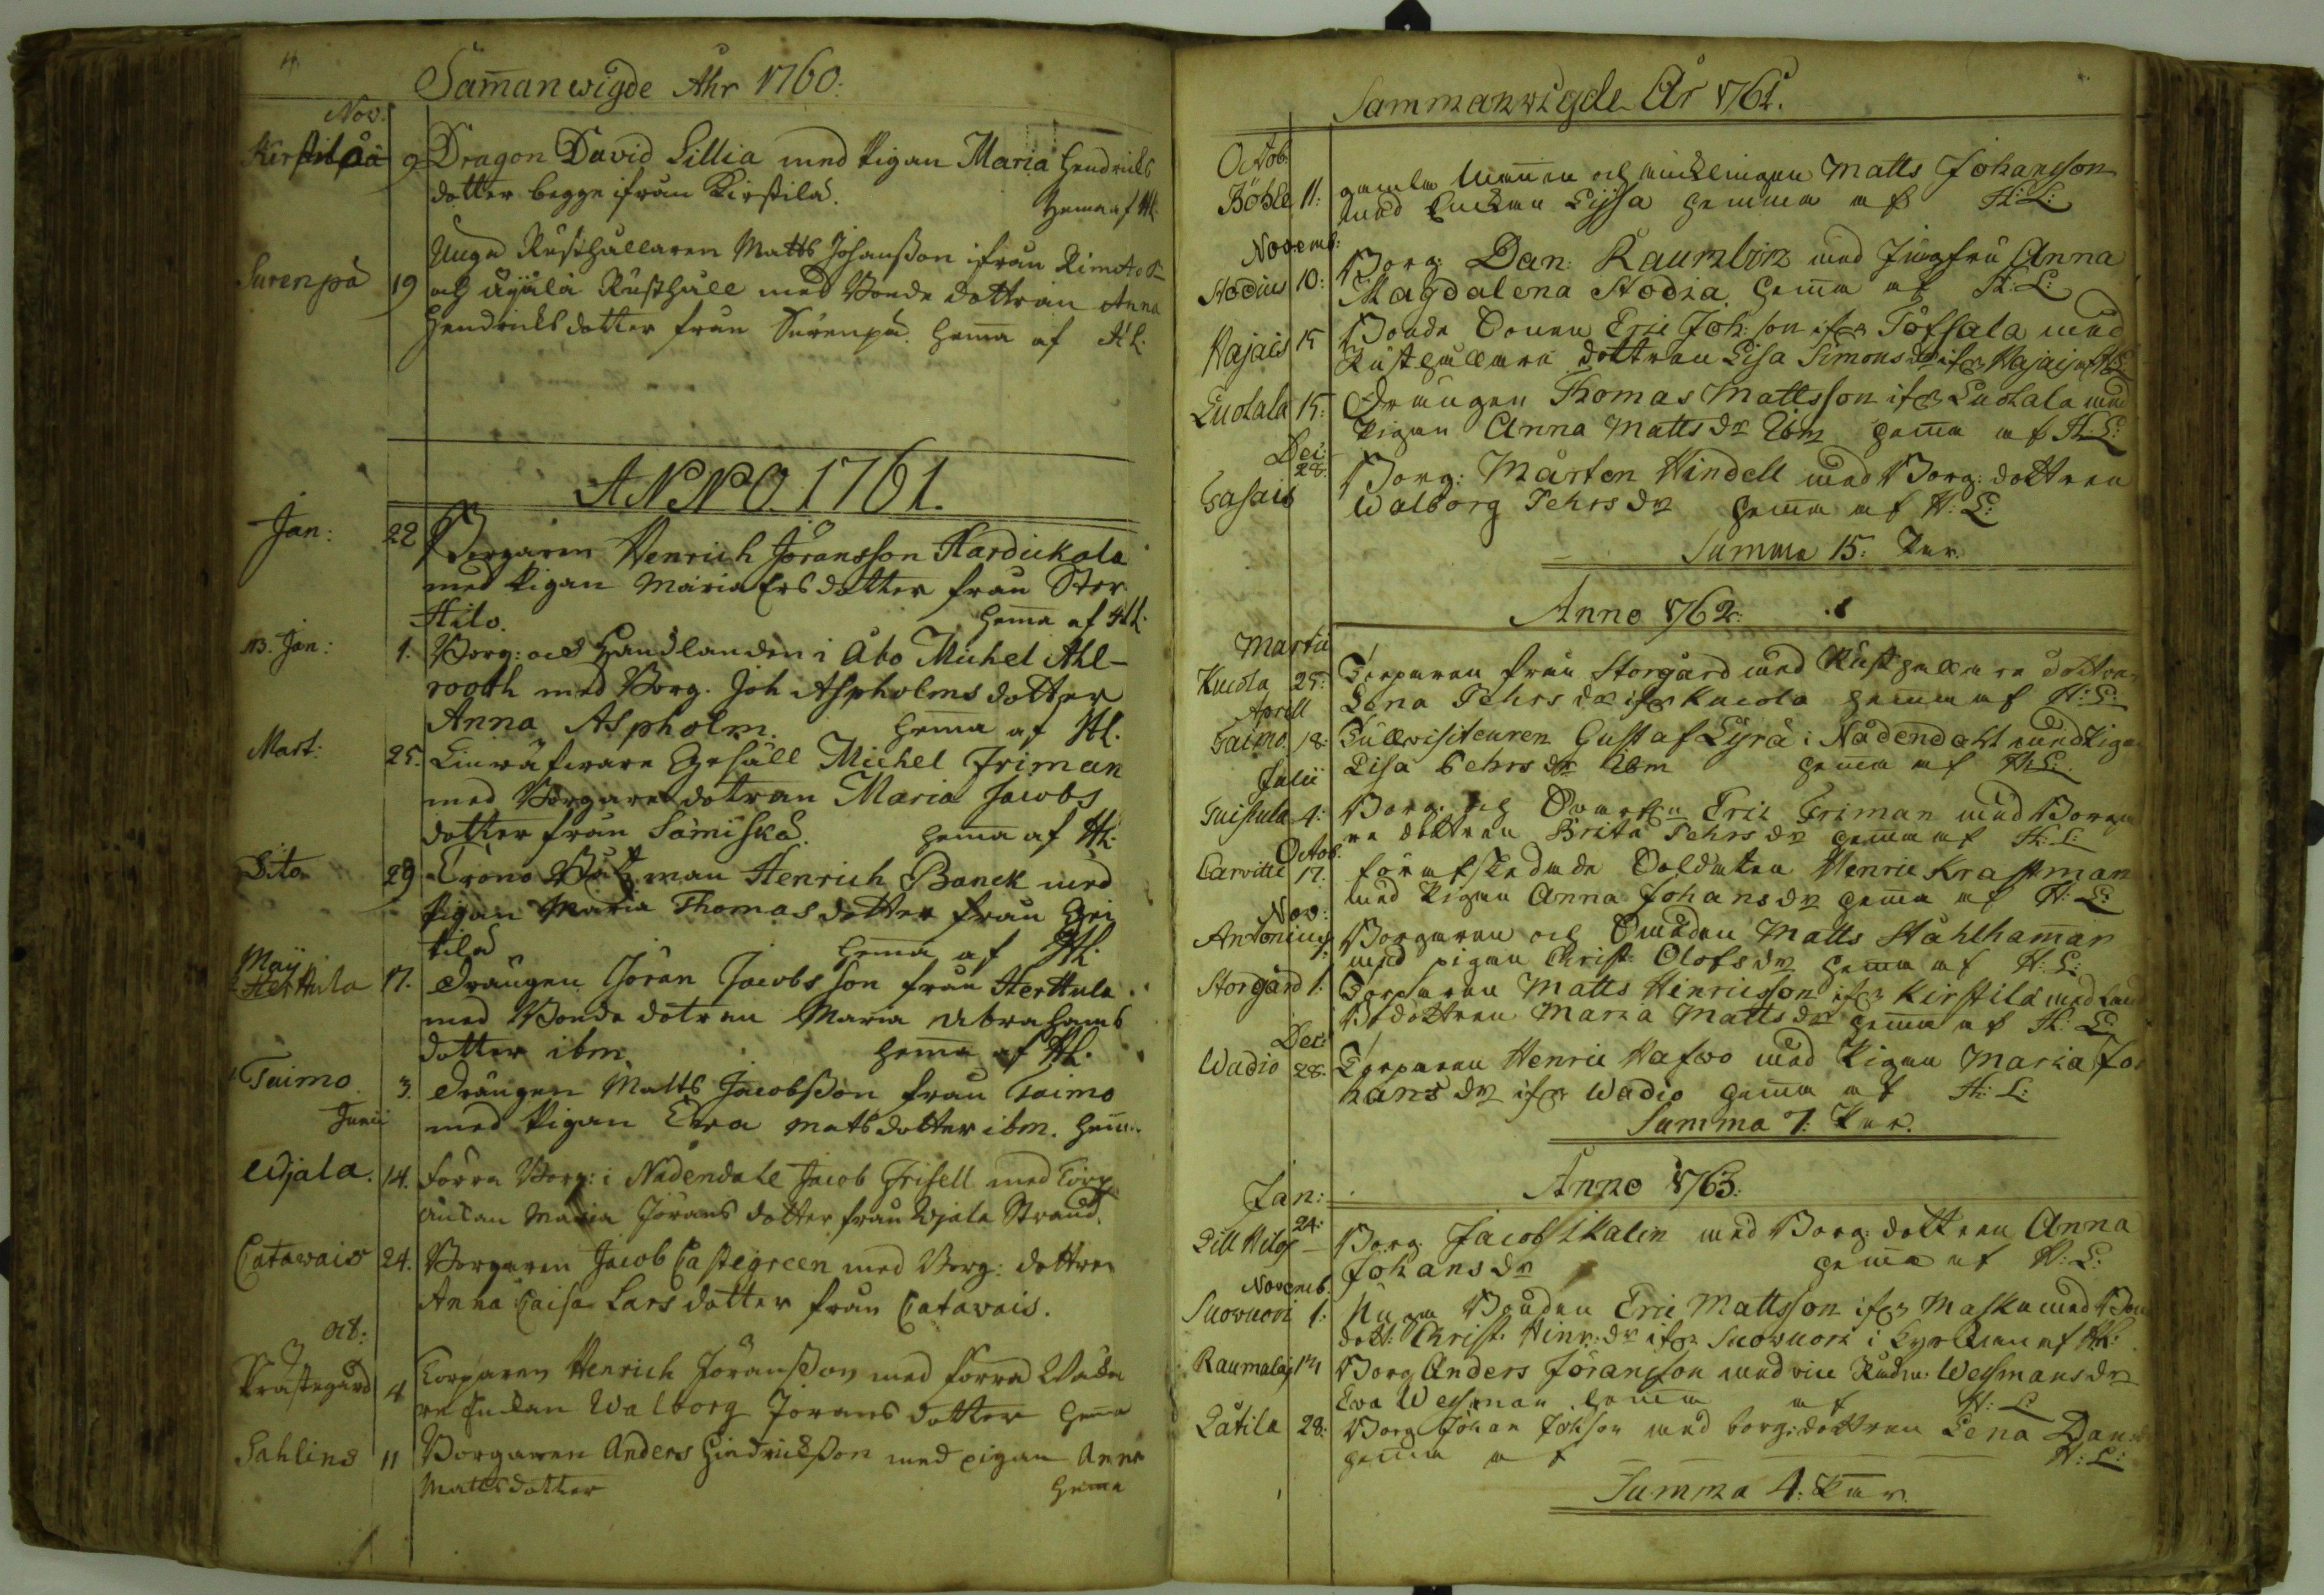 Samanwigde Ahr 1760.
Nov.
Kerstilää 9 Dragon David Lillia med Pigan Maria Hendrichs
dotter begge ifrån Kirstilä.
Hema af HL.
Unga Rusthållaren Matts Johansson ifrån Rimito
Surenpä 19 och Äijälä Rusthåll med Bonde dottran Anna
Hendrichsdotter från Surenpä. Hema af HL.
ANNO. 1761.
Jan: 22 Borgaren Henrich Jöransson Hardickala
med Pigan Maria Ersdotter från Stor
Hilo. Hema af HL.
NB. Jan: 1. Borg: och Handlanden i Åbo Michel Ahl-
rooth med Borg. Joh Aspholms dotter
Anna Aspholm. Hema af HL.
Mart: 25. Linwäfware Gesäll Michel Friman
med Borgare dotran Maria Jacobs
dotter från Sämiskä. Hema af HL.
Dito 29 Crono Båtzman Henrich Banck med
Pigan Maria Thomas dotter från
tilä Hema af HL.
Maij
Herttula 17. Drängen Jöran Jacobsson från Herttula
med Bonde dotran Maria Abrahams
dotter ibm. Hema af HL.
Taimo 3. Drängen Matts Jacobsson från Taimo
Junii med Pigan Ewa Matsdotter ibm. Hem
Wjala. 14. Förra Borg: i Nådendahl Jacob Frisell med Torp
änckan Maria Jörans dotter från Wjala Strand.
Catawais 24. Borgaren Jacob Castegreen med Borg: dottren
Anna Caisa Lars dotter från Catawais.
oct:
Prästegård 4 Torparen Henrich Jöransson med förra
änckan Walborg Jörans dotter Hema
Sahlins 11 Borgaren Anders Hindricksson med pigan Anna
Mattsdotter Hema
Sammanwigde År 1761.
Octob:
Böhle 11: gamla Mannen och änklingen Matts Johansson
med Enckan Lijsa hemma af H: L:
Novemb:
Stodius 10: Borg: Dan: Raumlin med Jungfru Anna
Magdalena Stodia. hema af H: L:
Kajais 15 Bonde Sonen Eric Joh: son ifr Töfsala med
Rusthållare dottren Lisa Simonsdr ifr Kajais HL
Luolala 15: Drängen Thomas Mattsson ifr Luolala med
Pigan Anna Matts dr Ibm hema af H: L:
Dec: 28: Borg: Mårten Hindell med Borg: dottren
Walborg Pehrs dr hema af H: L:
Summa 15: Par.
Anno 1762:
Martii
Kucola 25: Torparen från Storgård med Rusthållare dottren
Lena Pehrs dr ifr Kucola hemma af H: L:
Aprill
Taimo 18: Tullvisiteuren Gustaf Lyra i Nådendahl med Pigan
Lisa Pehrs dr Ibm hema af H: L:
Julii
Tuistula 4: Borg: och Eric Friman med Borga
re dottren Brita Pehrs dr hema af H: L:
Octob:
17: förafskedade Soldaten Henric Krastman
med Pigan Anna Johans dr hema af H: L:
Nov:
Antonius Borgaren och Smeden Matts Stahlhaman
med pigan Christ: Olofs dr hema af H: L:
Storgård 1: Torparen Matts Hinricsson ifr Kirstilä med
dottren Maria Matts dr hema af H: L:
Dec:
Wadio 28: Torparen Henric Hafwo med Pigan Maria Jo
hans dr ifr Wadio hema af H: L:
Summa 7: Par.
Anno 1763:
Jan:
24:
Lill Hilo Borg: Jacob Kalin med Borg: dottren Anna
Johans dr hema af H: L:
Novemb.
Suovuori 1: Unga Bonden Eric Mattsson ifr Masku med Bon
dott: Christ: Hinr: dr ifr Suovuori i Kyrckan af HL:
Raumalaj 14 Borg Anders Jöransson med vice Rådm. Wessmans dr
Ewa Wessman hema af H: L:
Lätilä 28: Borg Johan Johson med borg: dottren Lena Dans
hema af H: L:
Summa 4: Par.